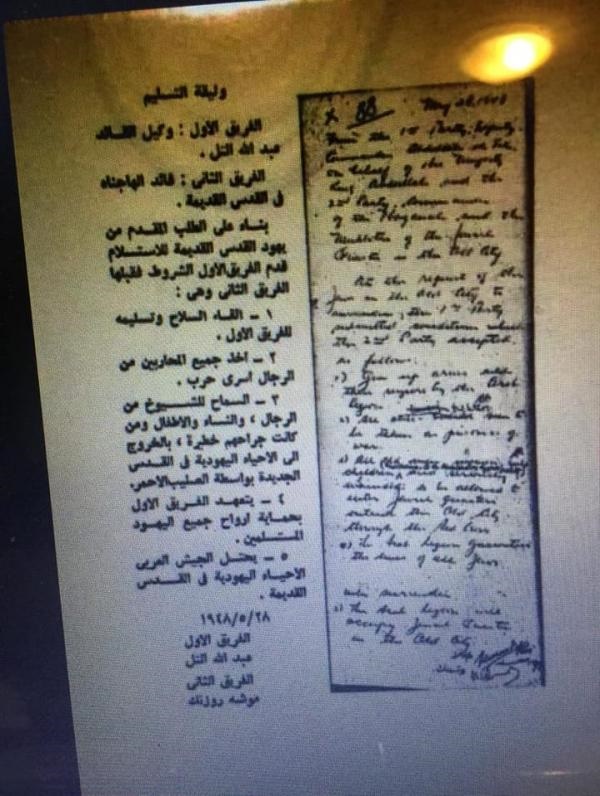 وثيقة التسليم
الفريق الأول : وكيل القائد
عبد الله التل .
الفريق الثانى : قائد الهاجناه
فى القدس القديمة .
بناء على الطلب المقدم من
يهود القدس القديمة للاستسلام
قدم الفريق الأول الشروط فقبلها
الفريق الثانى وهى :
١ ــ القاء السلاح وتسليمه
للفريق الأول .
٢ ــ اخذ جميع المحاربين من
الرجال أسرى حرب .
٣ ــ السماح للشيوخ من
الرجال ، والنساء والاطفال ومن
كانت جراحهم خطيرة ، بالخروج
الى الاحياء اليهودية فى القدس
الجديدة بواسطة الصليب الاحمر.
٤ ــ يتعهد الفريق الأول
بحماية ارواح جميع اليهود
المستسلمين .
٥ ــ يحتل الجيش العربى
الاحياء اليهودية فى القدس
القديمة .
١٩٤٨/٥/٢٨
الفريق الأول
عبد الله التل
الفريق الثانى
موشه روزنك
May 28, 1948
the 1st Party, Deputy
Commander Abdullah
on behalf of
King Abdullah and the
2nd Party, Commander
of the Haganah and the
of the Jewish
Quarter in the Old City
At the request of the
Jews in the Old City to
surrender, the 1st Party
submitted conditions which
the 2nd Party accepted.
as follows:
Give up arms and
by the Arab
Legion
be taken as prisoners of
war.
to be allowed to
enter Jewish quarters
outside the Old City
through the Red Cross
The Arab Legion guarantees
the lives of all Jews
who surrender
The Arab Legion will
occupy Jewish Quarter
in the Old City